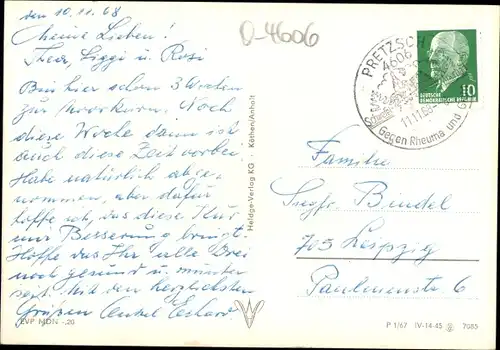 den 10.11.68
D-4606
Meine Lieben!
Thea, Siggi u. Rosi
Bin hier schon 3 Wochen
zur Moorkur. Noch
diese Woche dann ist
auch diese Zeit vorbei.
Habe natürlich abge-
nommen, aber dafür
hoffe ich, das diese Kur
mir Besserung bringt.
Hoffe das Ihr alle Drei
noch gesund u. munter
seit. Mit den herzlichsten
Grüßen Onkel Eckard
EVP MDN -,20
Heldge-Verlag KG Köthen/Anhalt
PRETZSCH
4606
11.11.68
gegen Rheuma und
10
DEUTSCHE
DEMOKRATISCHE REPUBLIK
Familie
Siegfr. Bindel
705 Leipzig
Paulinenstr. 6
P 1/67 IV-14-45 7085